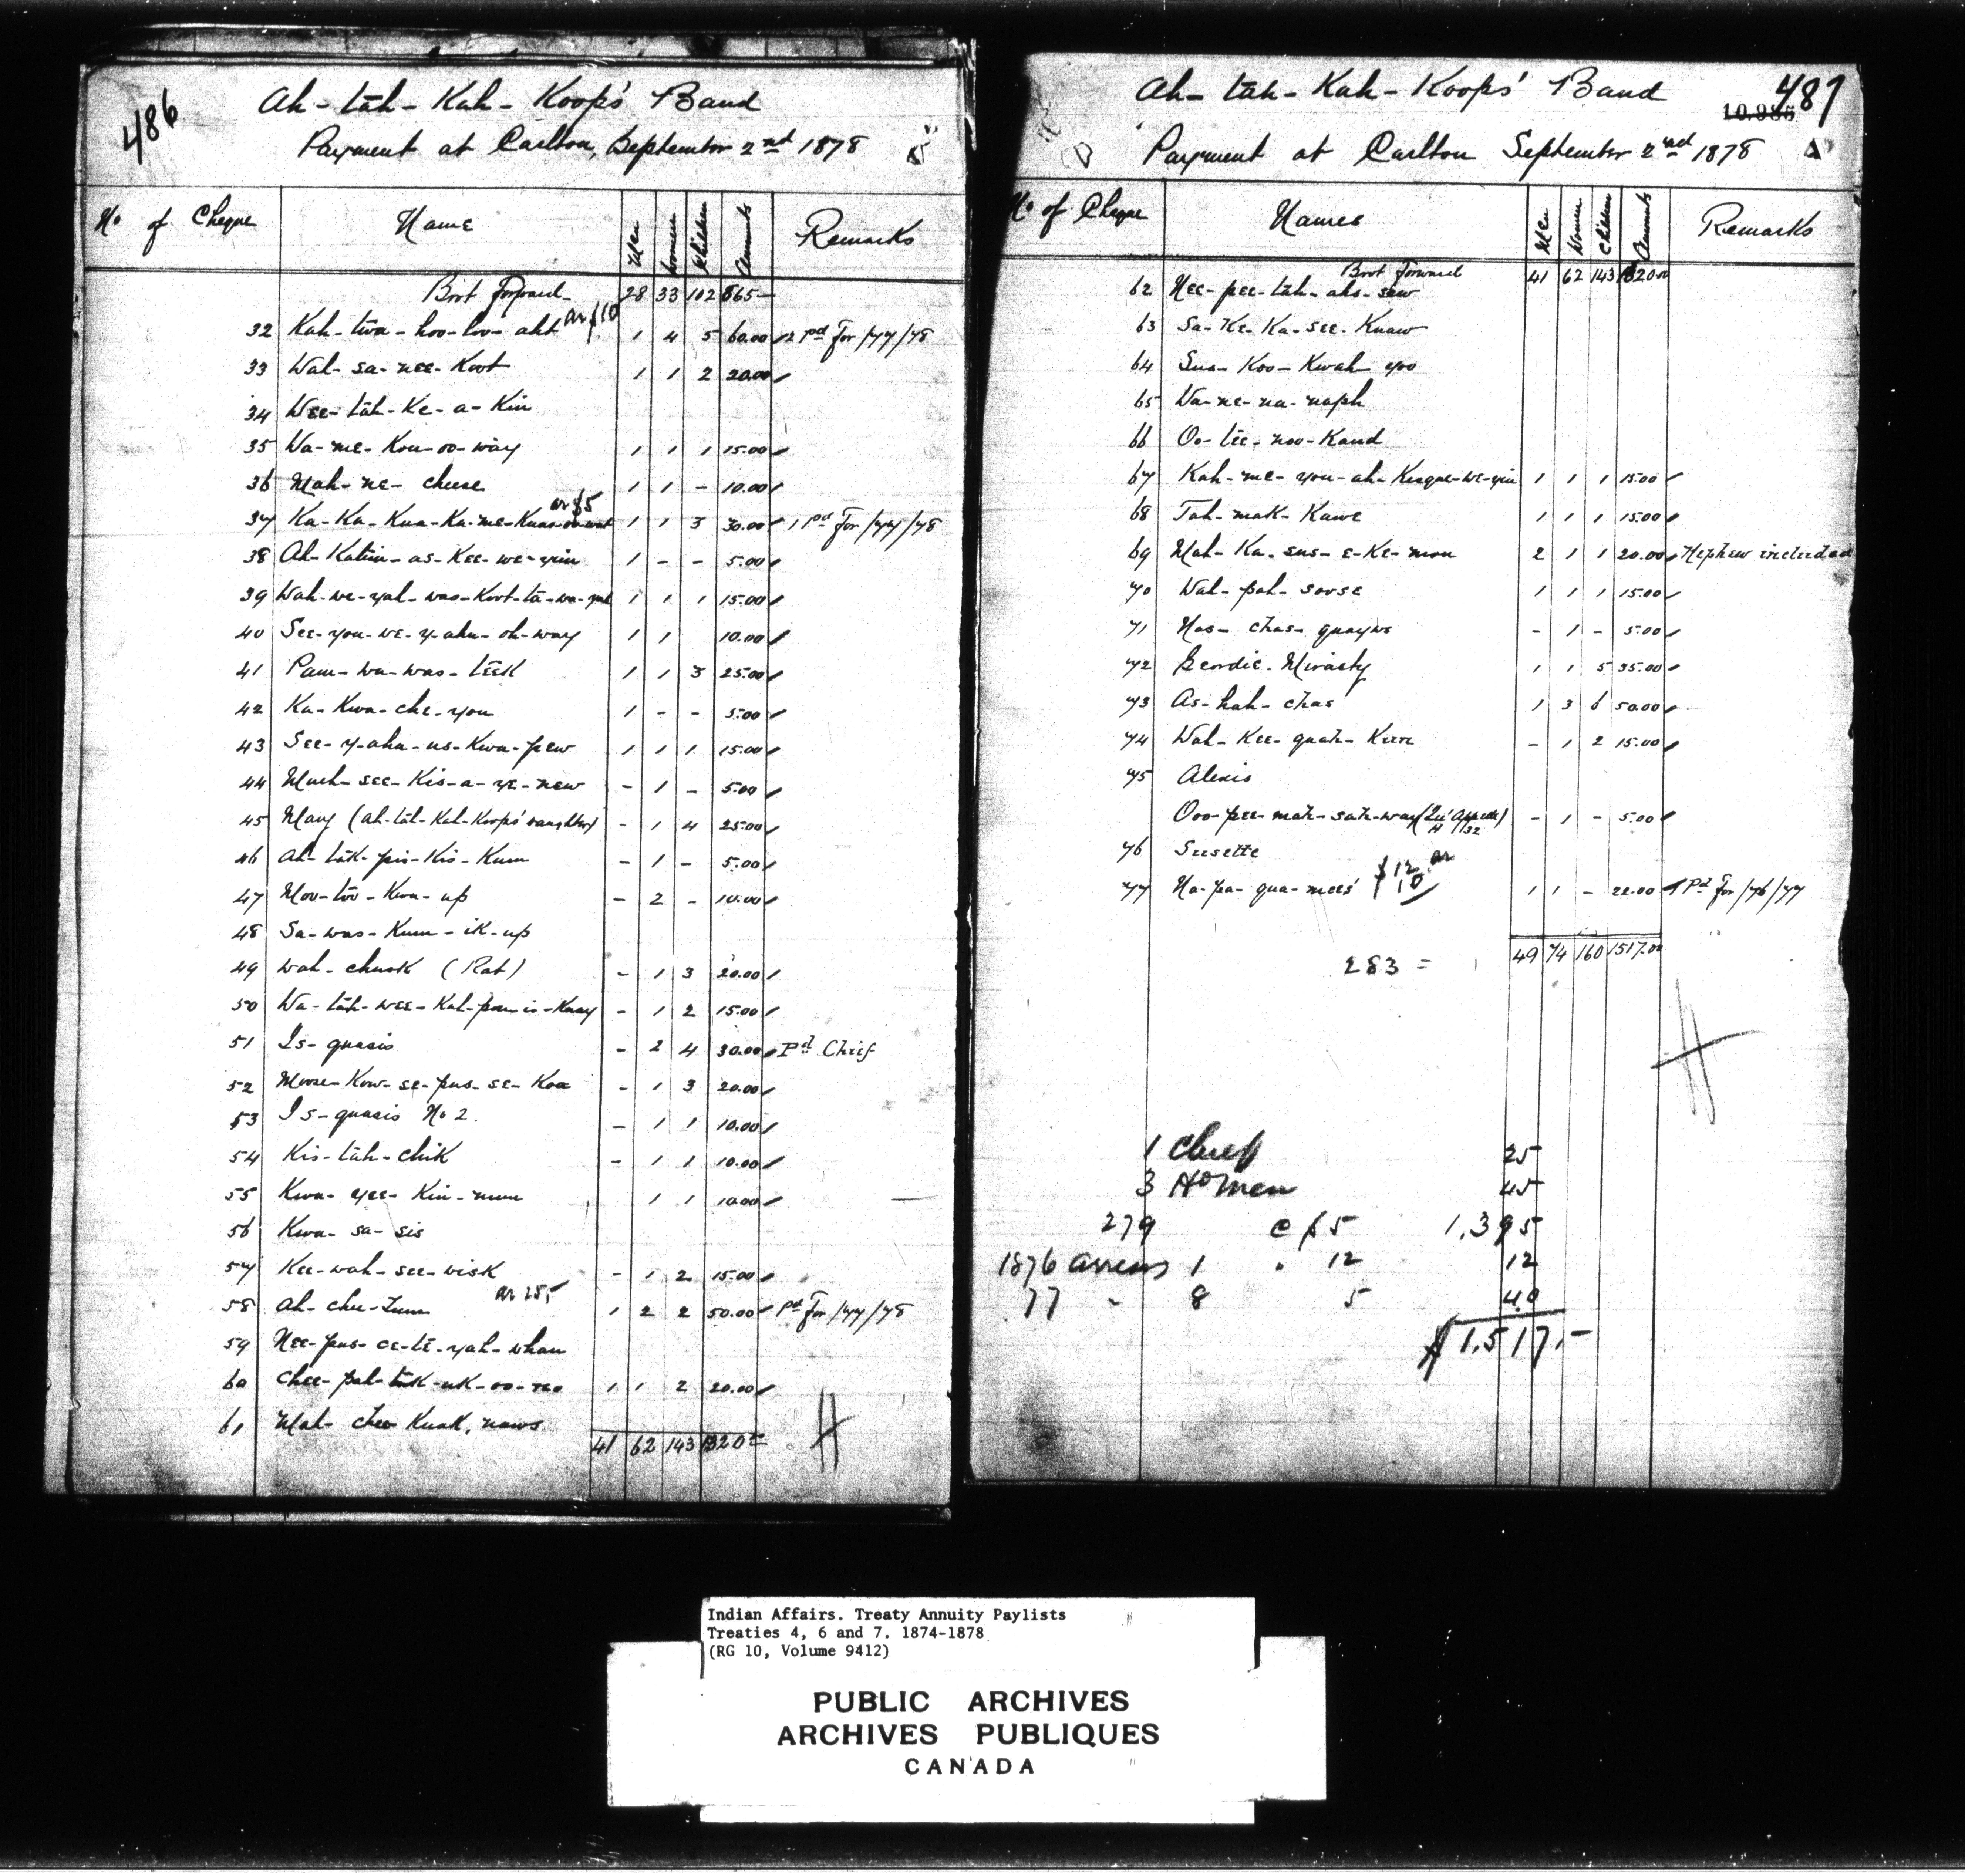 486
Ah-tah-Kah-Koops' Band
Payment at Carlton, September 2nd 1878
No of Cheque Name Men Women Children Amounts Remarks
Brot forward 28 33 102 865-
ar $10
32 Kah-twa-hoo-too-aht 1 4 5 60.00 12 Pd for /77/78
33 Wah-sa-nee-Koot 1 1 2 20.00
34 Wee-tah-Ke-a-Kin
35 Wa-me-Kou-oo-way 1 1 1 15.00
36 Mah-ne-cheese 1 1 - 10.00
ar $5
37 Ka-Ka-Kua-Ka-me-Kuas-oo-wat 1 1 3 30.00 1 Pd for /77/78
38 Ah-Katim-as-Kee-we-yin 1 - - 5.00
39 Wah-we-yah-was-Koot-ta-wa-yah 1 1 1 15.00
40 See-you-we-y-ahn-oh-way 1 1 10.00
41 Pam-wa-was-teek 1 1 3 25.00
42 Ka-Kwa-che-you 1 - - 5.00
43 See-y-aha-us-Kwa-pew 1 1 1 15.00
44 Much-see-Kis-a-ye-new - 1 - 5.00
45 Mary (Ah-tah-Kah-Koops' daughter) - 1 4 25.00
46 Ah-tak-pis-Kis-Kum - 1 - 5.00
47 Moo-too-Kwa-up - 2 - 10.00
48 Sa-was-Kum-ik-up
49 Wah-chusk (Rat) - 1 3 20.00
50 Wa-tah-wee-Kah-pou-is-Kway - 1 2 15.00
51 Is-quasis - 2 4 30.00 Pd Chief
52 Moose-Kow-se-pus-se-Koa - 1 3 20.00
53 Is-quasis No 2. - 1 1 10.00
54 Kis-tah-chik - 1 1 10.00
55 Kwa-yee-Kin-num 1 1 10.00
56 Kwa-sa-sis
57 Kee-wah-see-wisk - 1 2 15.00
ar 25
58 Ah-chee-Kum 1 2 2 50.00 Pd for /77/78
59 Nee-pus-ce-te-yah-whan
60 Chee-pah-tak-uk-oo-noo 1 1 2 20.00
61 Mah-chee Kuak, naws
41 62 143 1320.00
487
10.985
Ah-tah-Kah-Koops' Band
Payment at Carlton September 2nd 1878
No of Cheque Names Men Women Children Amounts Remarks
Brot forward 41 62 143 1320.00
62 Nee-pee-tah-ahs-sew
63 Sa-Ke-Ka-see-Knaw
64 Sus-Koo-Kwah-yoo
65 Wa-ne-na-naph
66 Oo-tee-noo-Kand
67 Kah-me-you-ah-Kesque-we-yin 1 1 1 15.00
68 Tah-mak-Kawe 1 1 1 15.00
69 Mah-Ka-sus-e-Ke-mon 2 1 1 20.00 Nephew included
70 Wah-pah-soose 1 1 1 15.00
71 Nas-chas-quayws - 1 - 5.00
72 Geordie-Mirasty 1 1 5 35.00
73 As-hah-chas 1 3 6 50.00
74 Wah-Kee-quah-Kum - 1 2 15.00
75 Alexis
Ooo-pee-mah-sah-way (Qu'Appelle) - 1 - 5.00
76 Susette
$12 ar
77 Na-pa-qua-mees' 10 1 1 - 22.00 Pd for /76/77
49 74 160 1517.00
283 =
1 Chief 25
3 Hdmen 45
279 @ $5 1,395
1876 arrears 1 " 12 12
77 " 8 5 40
$1,517.-
Indian Affairs. Treaty Annuity Paylists
Treaties 4, 6 and 7. 1874-1878
(RG 10, Volume 9412)
PUBLIC ARCHIVES
ARCHIVES PUBLIQUES
CANADA